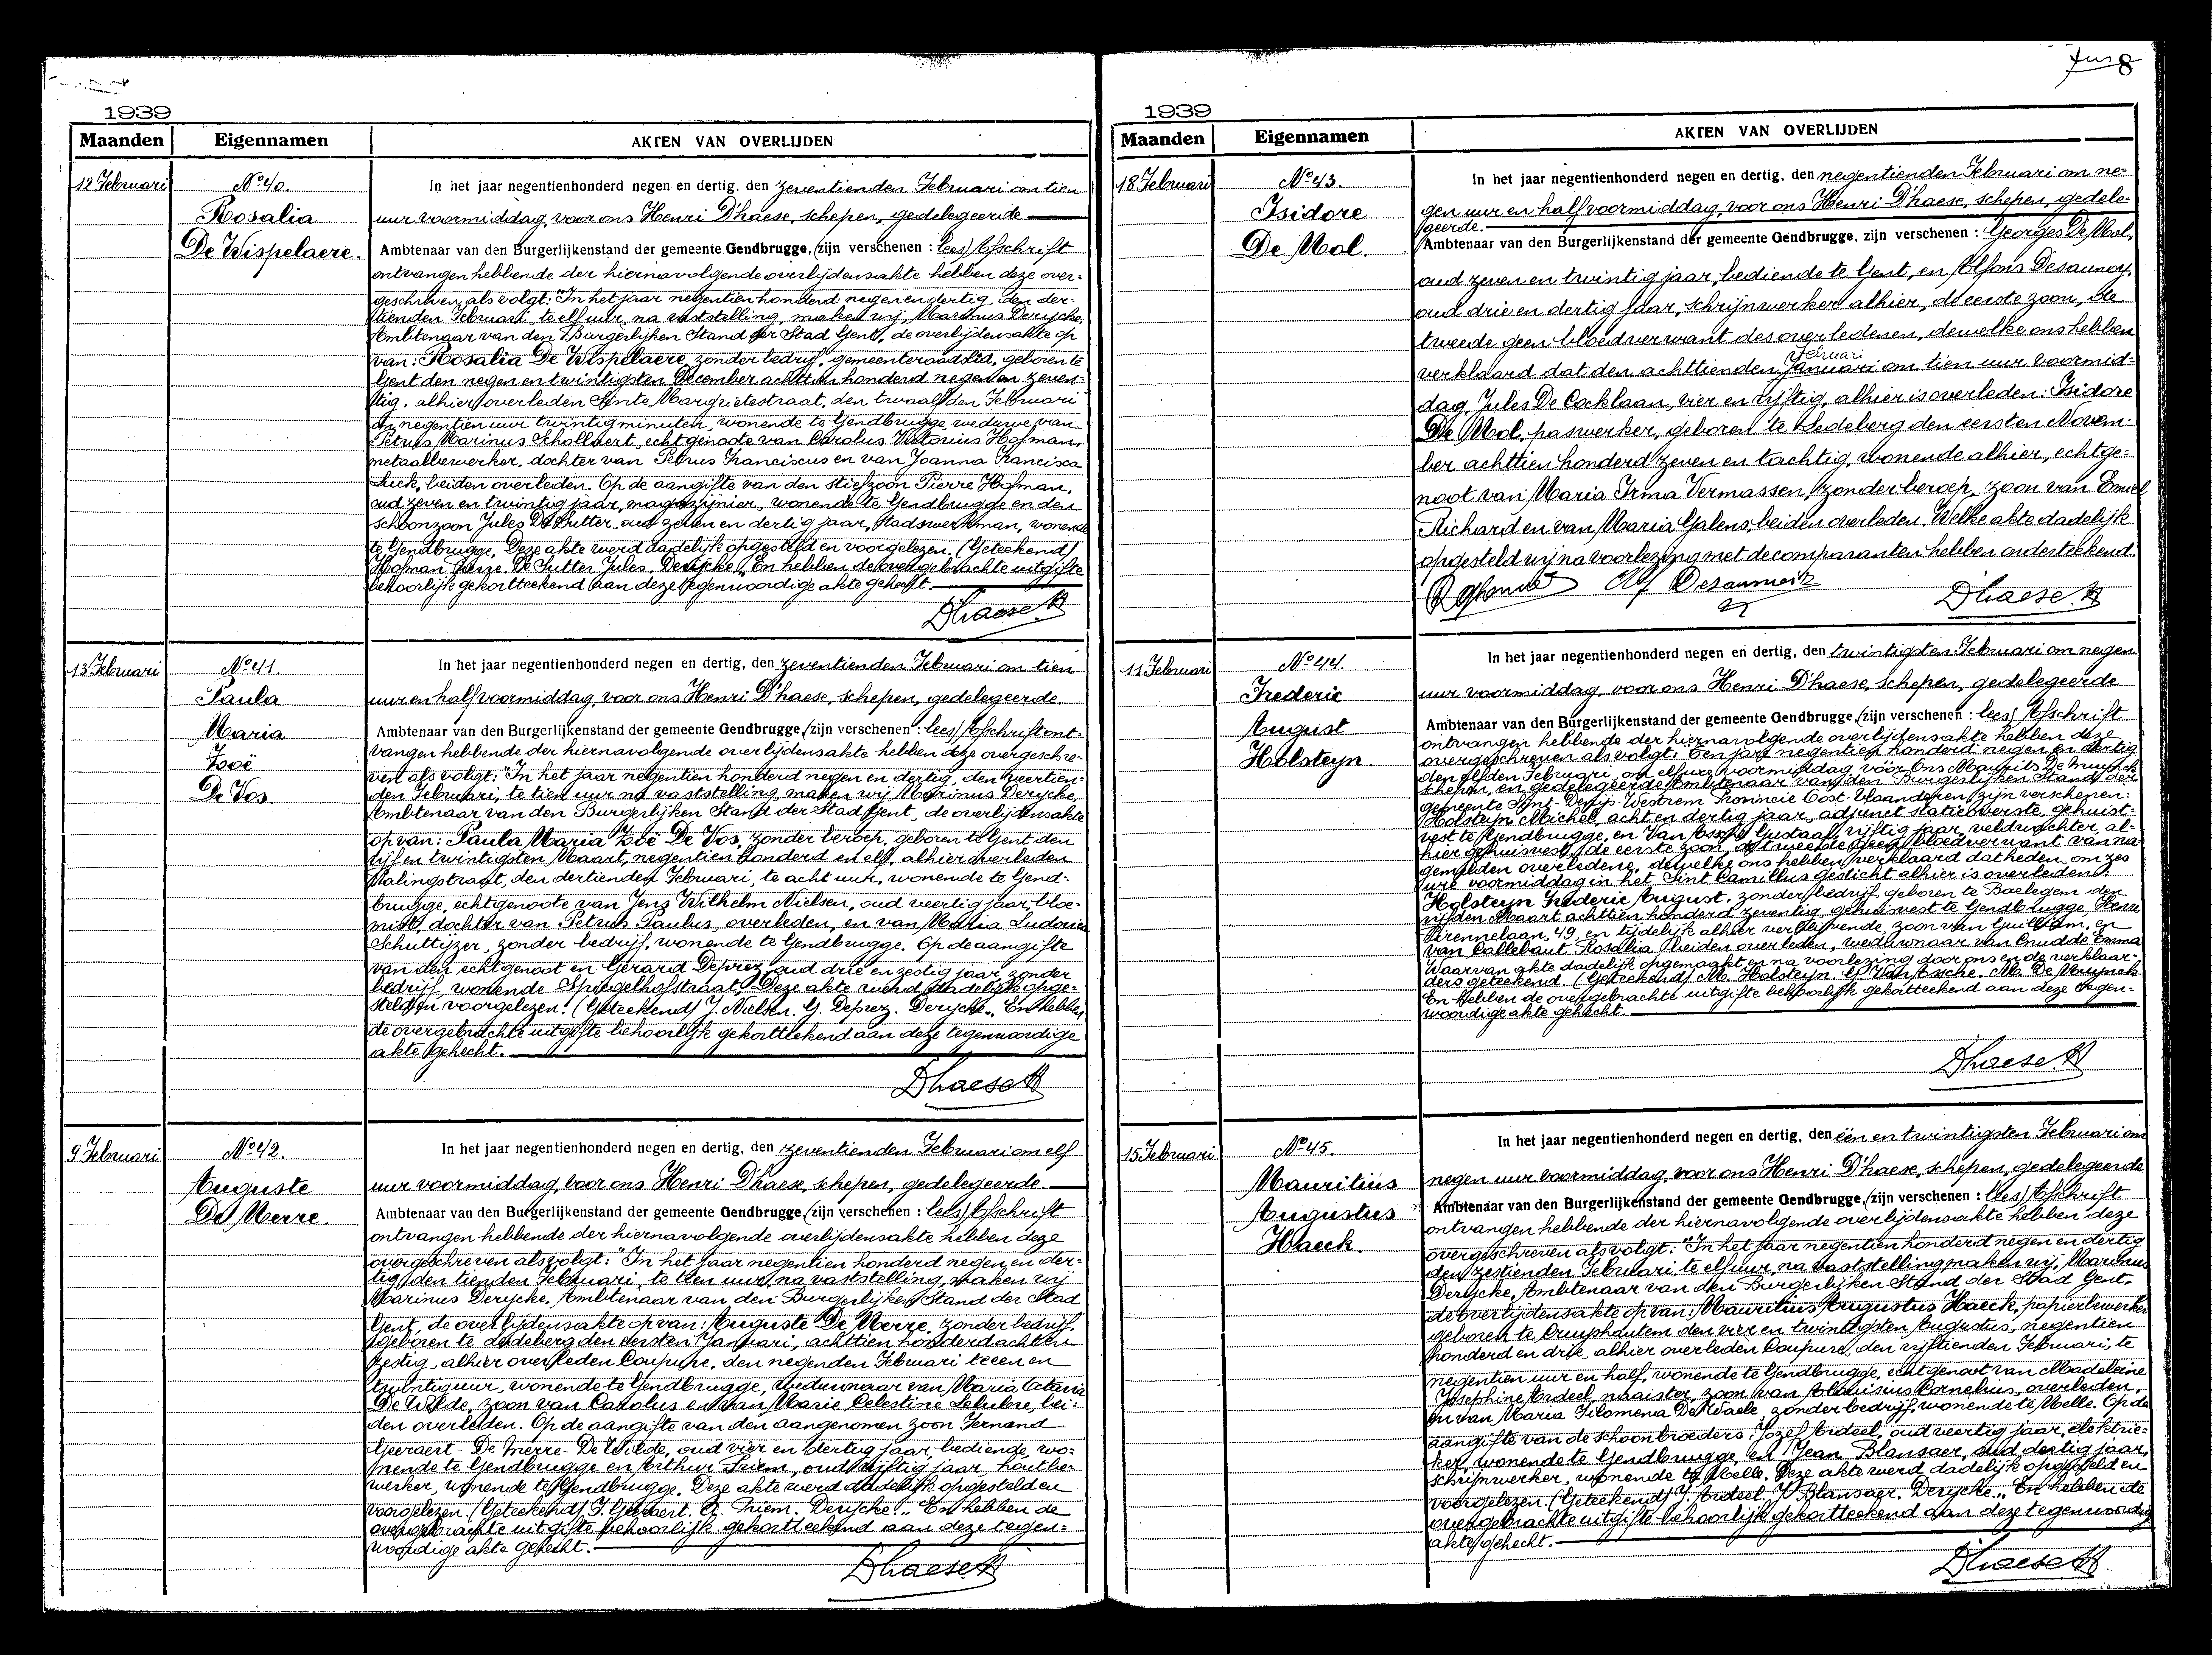 8
1939
Maanden
Eigennamen
AKTEN VAN OVERLIJDEN
12 Februari
No 40.
Rosalia
De Wispelaere.
In het jaar negentienhonderd negen en dertig, den zeventienden Februari om tien
uur voormiddag, voor ons Henri D'haese, schepen, gedelegeerde
Ambtenaar van den Burgerlijkenstand der gemeente Gendbrugge, (zijn verschenen : lees) Afschrift
ontvangen hebbende der hiernavolgende overlijdensakte hebben deze over-
geschreven als volgt: "In het jaar negentien honderd negen en dertig, den der-
tienden Februari, te elf uur, na vaststelling, maken wij, Marinus Derycke,
Ambtenaar van den Burgerlijken Stand der Stad Gent, de overlijdensakte op
van: Rosalia De Wispelaere, zonder bedrijf, gemeenteraadslid, geboren te
Gent den negen en twintigsten December achttien honderd negen en zeven-
tig, alhier overleden Sinte Margrietestraat, den twaalfden Februari
om negentien uur twintig minuten, wonende te Gendbrugge, weduwe van
Petrus Marinus Schollaert, echtgenoote van Carolus Victorius Hofman,
metaalbewerker, dochter van Petrus Franciscus en van Joanna Francisca
beiden overleden. Op de aangifte van den stiefzoon Pierre Hofman,
oud zeven en twintig jaar, magazijnier, wonende te Gendbrugge en den
schoonzoon Jules De Sutter, oud zeven en dertig jaar, stadswerkman, wonende
te Gendbrugge. Deze akte werd dadelijk opgesteld en voorgelezen. (Geteekend)
Hofman Pierre. De Sutter Jules. Derycke". En hebben de overgebrachte uitgifte
behoorlijk gekortteekend aan deze tegenwoordige akte gehecht.
D'haese H
13 Februari
No 41.
Paula
Maria
Zoë
De Vos.
In het jaar negentienhonderd negen en dertig, den zeventienden Februari om tien
uur en half voormiddag, voor ons Henri D'haese, schepen, gedelegeerde.
Ambtenaar van den Burgerlijkenstand der gemeente Gendbrugge, (zijn verschenen : lees) Afschrift ont-
vangen hebbende der hiernavolgende overlijdensakte hebben deze overgeschre-
ven als volgt: "In het jaar negentien honderd negen en dertig, den veertien-
den Februari, te tien uur na vaststelling maken wij Marinus Derycke,
Ambtenaar van den Burgerlijken Stand der Stad Gent, de overlijdensakte
op van: Paula Maria Zoë De Vos, zonder beroep, geboren te Gent den
vijf en twintigsten Maart, negentien honderd en elf, alhier overleden
Palingstraat, den dertienden Februari, te acht uur, wonende te Gend-
brugge, echtgenoote van Jens Wilhelm Nielsen, oud veertig jaar, bloe-
mist, dochter van Petrus Paulus, overleden, en van Maria Ludovica
Schuttijzer, zonder bedrijf, wonende te Gendbrugge. Op de aangifte
van den echtgenoot en Gerard Deprez, oud drie en zestig jaar, zonder
bedrijf, wonende Spiegelhofstraat. Deze akte werd dadelijk opge-
steld en voorgelezen. (Geteekend) J. Nielsen. G. Deprez. Derycke". En hebben
de overgebrachte uitgifte behoorlijk gekortteekend aan deze tegenwoordige
akte gehecht.
D'haese H
9 Februari
No 42.
Auguste
De Merre.
In het jaar negentienhonderd negen en dertig, den zeventienden Februari om elf
uur voormiddag, voor ons Henri D'haese, schepen, gedelegeerde.
Ambtenaar van den Burgerlijkenstand der gemeente Gendbrugge, (zijn verschenen : lees) Afschrift
ontvangen hebbende der hiernavolgende overlijdensakte hebben deze
overgeschreven als volgt: "In het jaar negentien honderd negen en der-
tig, den tienden Februari, te tien uur, na vaststelling, maken wij
Marinus Derycke, Ambtenaar van den Burgerlijken Stand der Stad
Gent, de overlijdensakte op van: Auguste De Merre, zonder bedrijf,
geboren te Ledeberg den eersten Januari, achttien honderd acht en
zestig, alhier overleden Coupure, den negenden Februari te een en
twintig uur, wonende te Gendbrugge, weduwnaar van Maria
De Wilde, zoon van Carolus en van Marie Celestine bei-
den overleden. Op de aangifte van den aangenomen zoon Fernand
Geeraert-De Merre-De Wilde, oud vier en dertig jaar, bediende, wo-
nende te Gendbrugge en Arthur oud vijftig jaar, houtbe-
werker, wonende te Gendbrugge. Deze akte werd dadelijk opgesteld en
voorgelezen. (Geteekend) F. Geeraert. A. Derycke". En hebben de
overgebrachte uitgifte behoorlijk gekortteekend aan deze tegen-
woordige akte gehecht.
D'haese H
1939
Maanden
Eigennamen
AKTEN VAN OVERLIJDEN
18 Februari
No 43.
Isidore
De Mol.
In het jaar negentienhonderd negen en dertig, den negentienden Februari om ne-
gen uur en half voormiddag, voor ons Henri D'haese, schepen, gedele-
geerde.
Ambtenaar van den Burgerlijkenstand der gemeente Gendbrugge, zijn verschenen : Georges De Mol,
oud zeven en twintig jaar, bediende te Gent, en Alfons Desaunoy,
oud drie en dertig jaar, schrijnwerker alhier, de eerste zoon, de
tweede geen bloedverwant des overledenen, dewelke ons hebben
Februari
verklaard dat den achttienden Januari om tien uur voormid-
dag, Jules De Cocklaan, vier en vijftig, alhier is overleden: Isidore
De Mol, paswerker, geboren te Ledeberg den eersten Novem-
ber achttien honderd zeven en tachtig, wonende alhier, echtge-
noot van Maria Irma Vermassen, zonder beroep, zoon van Emiel
Richard en van Maria Galens, beiden overleden. Welke akte dadelijk
opgesteld wij na voorlezing met de comparanten hebben onderteekend.
D'haese H
11 Februari
No 44.
Frederic
August
Holsteyn
In het jaar negentienhonderd negen en dertig, den twintigsten Februari om negen
uur voormiddag, voor ons Henri D'haese, schepen, gedelegeerde
Ambtenaar van den Burgerlijkenstand der gemeente Gendbrugge, (zijn verschenen : lees) Afschrift
ontvangen hebbende der hiernavolgende overlijdensakte hebben deze
overgeschreven als volgt: "Een jare negentien honderd negen en dertig
den elfden Februari, om elf ure voormiddag vóór Ons Maurits De Muynck
schepen, en gedelegeerde Ambtenaar van den Burgerlijken Stand der
gemeente Sint-Denijs-Westrem Provincie Oost-Vlaanderen, zijn verschenen:
Holsteyn Michel, acht en dertig jaar, adjunct statieoverste, gehuist-
vest te Gendbrugge, en Van Assche Gustaaf, vijftig jaar, veldwachter, al-
hier gehuisvest, de eerste zoon, de tweede geen bloedverwant van na-
gemelden overledene, dewelke ons hebben verklaard dat heden, om zes
ure voormiddag in het Sint Camillus gesticht alhier is overleden:
Holsteyn Frederic August, zonder bedrijf, geboren te Baelegem den
vijfden Maart achttien honderd zeventig, gehuisvest te Gendbrugge, Henri
Pirennelaan, 49, en tijdelijk alhier verblijvende, zoon van Guilliam, en
van Callebaut Rosalia, beiden overleden, weduwnaar van Cnudde Emma
Waarvan akte dadelijk opgemaakt en na voorlezing door ons en de verklaar-
ders geteekend. (Geteekend) M. Holsteyn. G. Van Assche. M. De Muynck.
En hebben de overgebrachte uitgifte behoorlijk gekortteekend aan deze tegen-
woordige akte gehecht.
D'haese H
15 Februari
No 45.
Mauritius
Augustus
Haeck.
In het jaar negentienhonderd negen en dertig, den één en twintigsten Februari om
negen uur voormiddag, voor ons Henri D'haese, schepen, gedelegeerde
Ambtenaar van den Burgerlijkenstand der gemeente Gendbrugge, (zijn verschenen : lees) Afschrift
ontvangen hebbende der hiernavolgende overlijdensakte hebben deze
overgeschreven als volgt: "In het jaar negentien honderd negen en dertig
den zestienden Februari, te elf uur, na vaststelling maken wij, Marinus
Derycke, Ambtenaar van den Burgerlijken Stand der Stad Gent,
de overlijdensakte op van: Mauritius Augustus Haeck, papierbewerker
geboren te Cruyshautem den vier en twintigsten Augustus, negentien
honderd en drie, alhier overleden Coupure, den vijftienden Februari, te
negentien uur en half, wonende te Gendbrugge, echtgenoot van Madeleine
Josephine Ardeel, naaister, zoon van Aloüisius Cornelius, overleden,
en van Maria Filomena De Waele, zonder bedrijf, wonende te Melle. Op de
aangifte van de schoonbroeders: Jozef Ardeel, oud veertig jaar, elektrie-
ker, wonende te Gendbrugge, en Jean Blansaer, oud dertig jaar,
schrijnwerker, wonende te Melle. Deze akte werd dadelijk opgesteld en
voorgelezen. (Geteekend) J. Ardeel. J. Blansaer. Derycke". En hebben de
overgebrachte uitgifte behoorlijk gekortteekend aan deze tegenwoordige
akte gehecht.
D'haese H